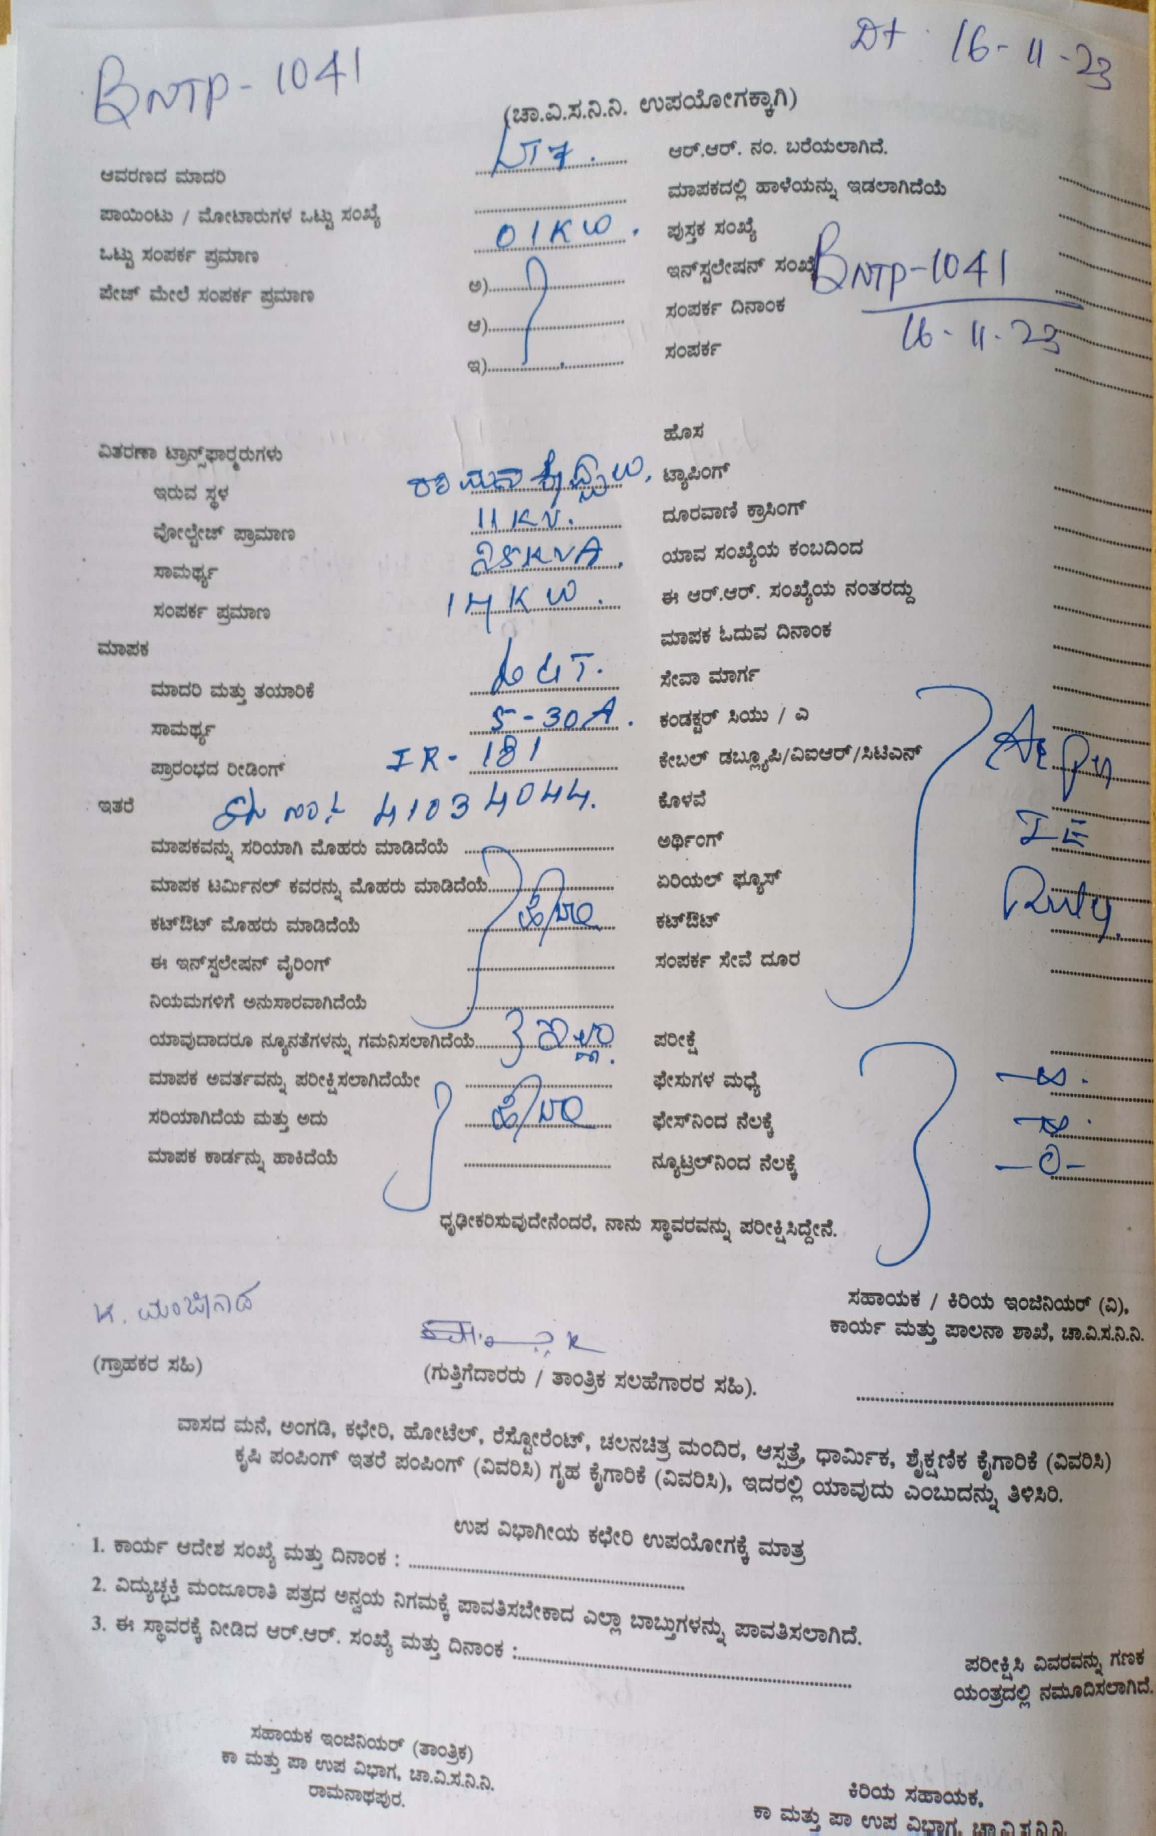 BNTP-1041
Dt. 16-11-23
(ಚಾ.ವಿ.ಸ.ನಿ.ನಿ. ಉಪಯೋಗಕ್ಕಾಗಿ)
ಆವರಣದ ಮಾದರಿ LT7. ಆರ್.ಆರ್. ನಂ. ಬರೆಯಲಾಗಿದೆ.
ಪಾಯಿಂಟು / ಮೋಟಾರುಗಳ ಒಟ್ಟು ಸಂಖ್ಯೆ ಮಾಪಕದಲ್ಲಿ ಹಾಳೆಯನ್ನು ಇಡಲಾಗಿದೆಯೆ
ಒಟ್ಟು ಸಂಪರ್ಕ ಪ್ರಮಾಣ 01KW. ಪುಸ್ತಕ ಸಂಖ್ಯೆ
ಪೇಜ್ ಮೇಲೆ ಸಂಪರ್ಕ ಪ್ರಮಾಣ ಅ) ಇನ್‌ಸ್ಟಲೇಷನ್ ಸಂಖ್ಯೆ BNTP-1041
ಆ) ಸಂಪರ್ಕ ದಿನಾಂಕ 16-11-23
ಇ) ಸಂಪರ್ಕ
ವಿತರಣಾ ಟ್ರಾನ್ಸ್‌ಫಾರ್‍ಮರುಗಳು ಹೊಸ
ಇರುವ ಸ್ಥಳ ಟ್ಯಾಪಿಂಗ್
ವೋಲ್ಟೇಜ್ ಪ್ರಾಮಾಣ 11KV. ದೂರವಾಣಿ ಕ್ರಾಸಿಂಗ್
ಸಾಮರ್ಥ್ಯ 25KVA. ಯಾವ ಸಂಖ್ಯೆಯ ಕಂಬದಿಂದ
ಸಂಪರ್ಕ ಪ್ರಮಾಣ 14KW. ಈ ಆರ್.ಆರ್. ಸಂಖ್ಯೆಯ ನಂತರದ್ದು
ಮಾಪಕ ಮಾಪಕ ಓದುವ ದಿನಾಂಕ
ಮಾದರಿ ಮತ್ತು ತಯಾರಿಕೆ L&T. ಸೇವಾ ಮಾರ್ಗ
ಸಾಮರ್ಥ್ಯ 5-30A. ಕಂಡಕ್ಟರ್ ಸಿಯು / ಎ
ಪ್ರಾರಂಭದ ರೀಡಿಂಗ್ IR-181 ಕೇಬಲ್ ಡಬ್ಲ್ಯೂಪಿ/ವಿಐಆರ್/ಸಿಟಿಎಸ್ As per
ಇತರೆ Sl no:- 41034044. ಕೊಳವೆ
ಮಾಪಕವನ್ನು ಸರಿಯಾಗಿ ಮೊಹರು ಮಾಡಿದೆಯೆ ಅರ್ಥಿಂಗ್ IE
ಮಾಪಕ ಟರ್ಮಿನಲ್ ಕವರನ್ನು ಮೊಹರು ಮಾಡಿದೆಯೆ ಏರಿಯಲ್ ಫ್ಯೂಸ್
ಕಟ್‌ಔಟ್ ಮೊಹರು ಮಾಡಿದೆಯೆ ಹೌದು ಕಟ್‌ಔಟ್
ಈ ಇನ್‌ಸ್ಟಲೇಷನ್ ವೈರಿಂಗ್ ಸಂಪರ್ಕ ಸೇವೆ ದೂರ
ನಿಯಮಗಳಿಗೆ ಅನುಸಾರವಾಗಿದೆಯೆ
ಯಾವುದಾದರೂ ನ್ಯೂನತೆಗಳನ್ನು ಗಮನಿಸಲಾಗಿದೆಯೆ ಇಲ್ಲಾ. ಪರೀಕ್ಷೆ
ಮಾಪಕ ಅವರ್ತವನ್ನು ಪರೀಕ್ಷಿಸಲಾಗಿದೆಯೇ ಫೇಸುಗಳ ಮಧ್ಯೆ -∞.
ಸರಿಯಾಗಿದೆಯ ಮತ್ತು ಅದು ಹೌದು ಫೇಸ್‌ನಿಂದ ನೆಲಕ್ಕೆ -∞.
ಮಾಪಕ ಕಾರ್ಡನ್ನು ಹಾಕಿದೆಯೆ ನ್ಯೂಟ್ರಲ್‌ನಿಂದ ನೆಲಕ್ಕೆ -0-
ಧೃಢೀಕರಿಸುವುದೇನೆಂದರೆ, ನಾನು ಸ್ಥಾವರವನ್ನು ಪರೀಕ್ಷಿಸಿದ್ದೇನೆ.
ಸಹಾಯಕ / ಕಿರಿಯ ಇಂಜಿನಿಯರ್ (ವಿ),
ಕಾರ್ಯ ಮತ್ತು ಪಾಲನಾ ಶಾಖೆ, ಚಾ.ವಿ.ಸ.ನಿ.ನಿ.
(ಗ್ರಾಹಕರ ಸಹಿ) (ಗುತ್ತಿಗೆದಾರರು / ತಾಂತ್ರಿಕ ಸಲಹೆಗಾರರ ಸಹಿ).
ವಾಸದ ಮನೆ, ಅಂಗಡಿ, ಕಛೇರಿ, ಹೋಟೆಲ್, ರೆಸ್ಟೋರೆಂಟ್, ಚಲನಚಿತ್ರ ಮಂದಿರ, ಆಸ್ಪತ್ರೆ, ಧಾರ್ಮಿಕ, ಶೈಕ್ಷಣಿಕ ಕೈಗಾರಿಕೆ (ವಿವರಿಸಿ)
ಕೃಷಿ ಪಂಪಿಂಗ್ ಇತರೆ ಪಂಪಿಂಗ್ (ವಿವರಿಸಿ) ಗೃಹ ಕೈಗಾರಿಕೆ (ವಿವರಿಸಿ), ಇದರಲ್ಲಿ ಯಾವುದು ಎಂಬುದನ್ನು ತಿಳಿಸಿರಿ.
ಉಪ ವಿಭಾಗೀಯ ಕಛೇರಿ ಉಪಯೋಗಕ್ಕೆ ಮಾತ್ರ
1. ಕಾರ್ಯ ಆದೇಶ ಸಂಖ್ಯೆ ಮತ್ತು ದಿನಾಂಕ :
2. ವಿದ್ಯುಚ್ಛಕ್ತಿ ಮಂಜೂರಾತಿ ಪತ್ರದ ಅನ್ವಯ ನಿಗಮಕ್ಕೆ ಪಾವತಿಸಬೇಕಾದ ಎಲ್ಲಾ ಬಾಬ್ತುಗಳನ್ನು ಪಾವತಿಸಲಾಗಿದೆ.
3. ಈ ಸ್ಥಾವರಕ್ಕೆ ನೀಡಿದ ಆರ್.ಆರ್. ಸಂಖ್ಯೆ ಮತ್ತು ದಿನಾಂಕ :
ಪರೀಕ್ಷಿಸಿ ವಿವರವನ್ನು ಗಣಕ
ಯಂತ್ರದಲ್ಲಿ ನಮೂದಿಸಲಾಗಿದೆ.
ಸಹಾಯಕ ಇಂಜಿನಿಯರ್ (ತಾಂತ್ರಿಕ)
ಕಾ ಮತ್ತು ಪಾ ಉಪ ವಿಭಾಗ, ಚಾ.ವಿ.ಸ.ನಿ.ನಿ.
ರಾಮನಾಥಪುರ.
ಕಿರಿಯ ಸಹಾಯಕ,
ಕಾ ಮತ್ತು ಪಾ ಉಪ ವಿಭಾಗ, ಚಾ.ವಿ.ಸ.ನಿ.ನಿ.